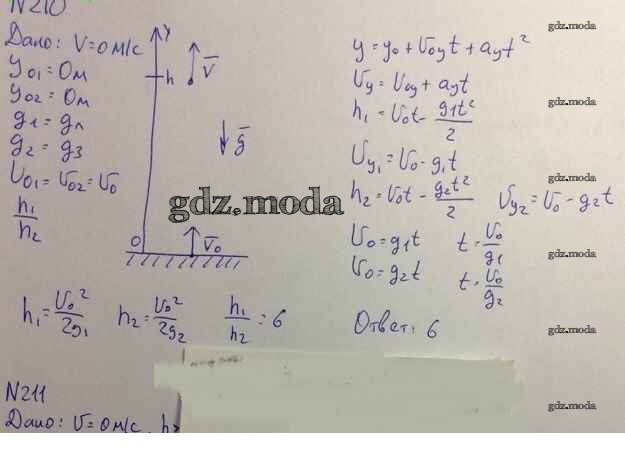 N210
Дано: V=0 м/с
y₀₁ = 0м
y₀₂ = 0м
g₁ = gл
g₂ = gз
υ₀₁ = υ₀₂ = υ₀
h₁/h₂
Y
h
V̅
g̅
0
V̅₀
y = y₀ + υ₀yt + ayt²
υy = υ₀y + ayt
h₁ = υ₀t - g₁t²/2
υy₁ = υ₀ - g₁t
h₂ = υ₀t - g₂t²/2 υy₂ = υ₀ - g₂t
υ₀ = g₁t t = υ₀/g₁
υ₀ = g₂t t = υ₀/g₂
h₁ = υ₀²/2g₁ h₂ = υ₀²/2g₂ h₁/h₂ = 6
Ответ: 6
N211
Дано: V=0 м/с, h
gdz.moda
gdz.moda
gdz.moda
gdz.moda
gdz.moda
gdz.moda
gdz.moda